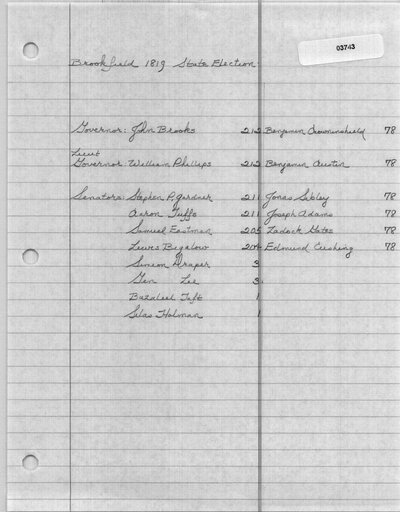 03743
Brookfield 1819 State Election
Governor: John Brooks 212 Benjamin Crowninshield 78
Lieut
Governor William Phillips 212 Benjamin Austin 78
Senators: Stephen P. Gardner 211 Jonas Sibley 78
Aaron Tufts 211 Joseph Adams 78
Samuel Eastman 205 Zadock Gates 78
Lewis Bigalow Edmund Cushing 78
Simeon Draper 3
Gen Lee 3
Bazaleel Taft 1
Silas Holman 1